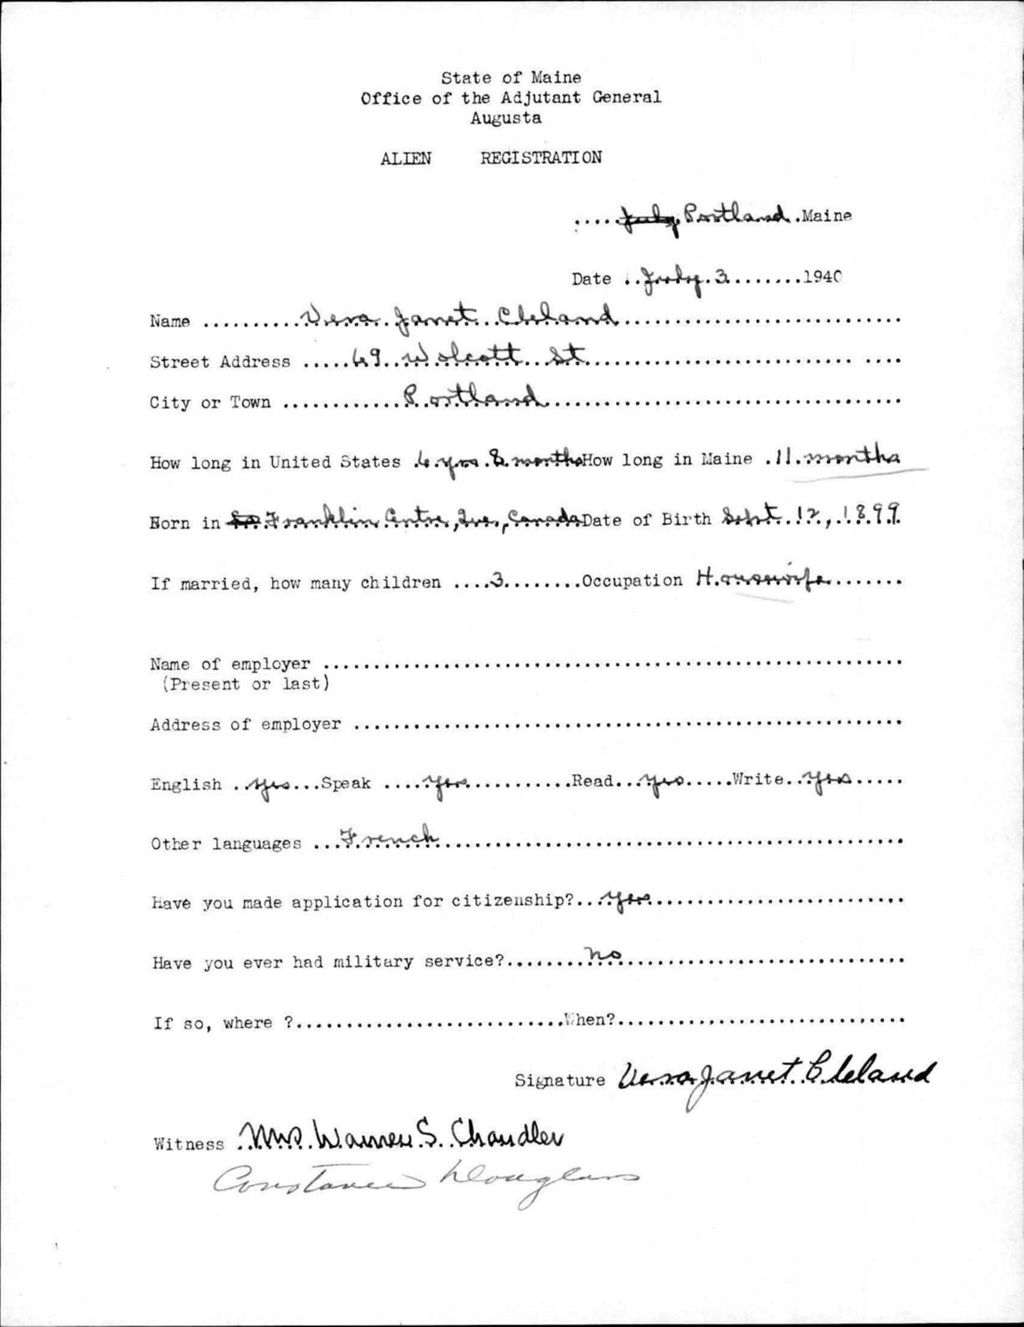 State of Maine
Office of the Adjutant General
Augusta
ALIEN REGISTRATION
.....July Portland.Maine
Date ..July.3........1940
Name ..........Vera.Janet.Cleland..............................
Street Address .....69..Wolcott..St........................... ....
City or Town ............Portland..................................
How long in United States .6.yrs.8.monthsHow long in Maine .11.months
Born in Franklin.Centre,Que.,CanadaDate of Birth Sept..12,.1899.
If married, how many children ....3........Occupation Housewife........
Name of employer ..........................................................
(Present or last)
Address of employer .......................................................
English ..yes...Speak ....yes..........Read...yes.....Write..yes.....
Other languages ...French..............................................
Have you made application for citizenship?...yes.........................
Have you ever had military service?........no............................
If so, where ?...........................When?.............................
Signature Vera Janet. Cleland
Witness .Mrs. Warren S. Chandler
Constance Douglass